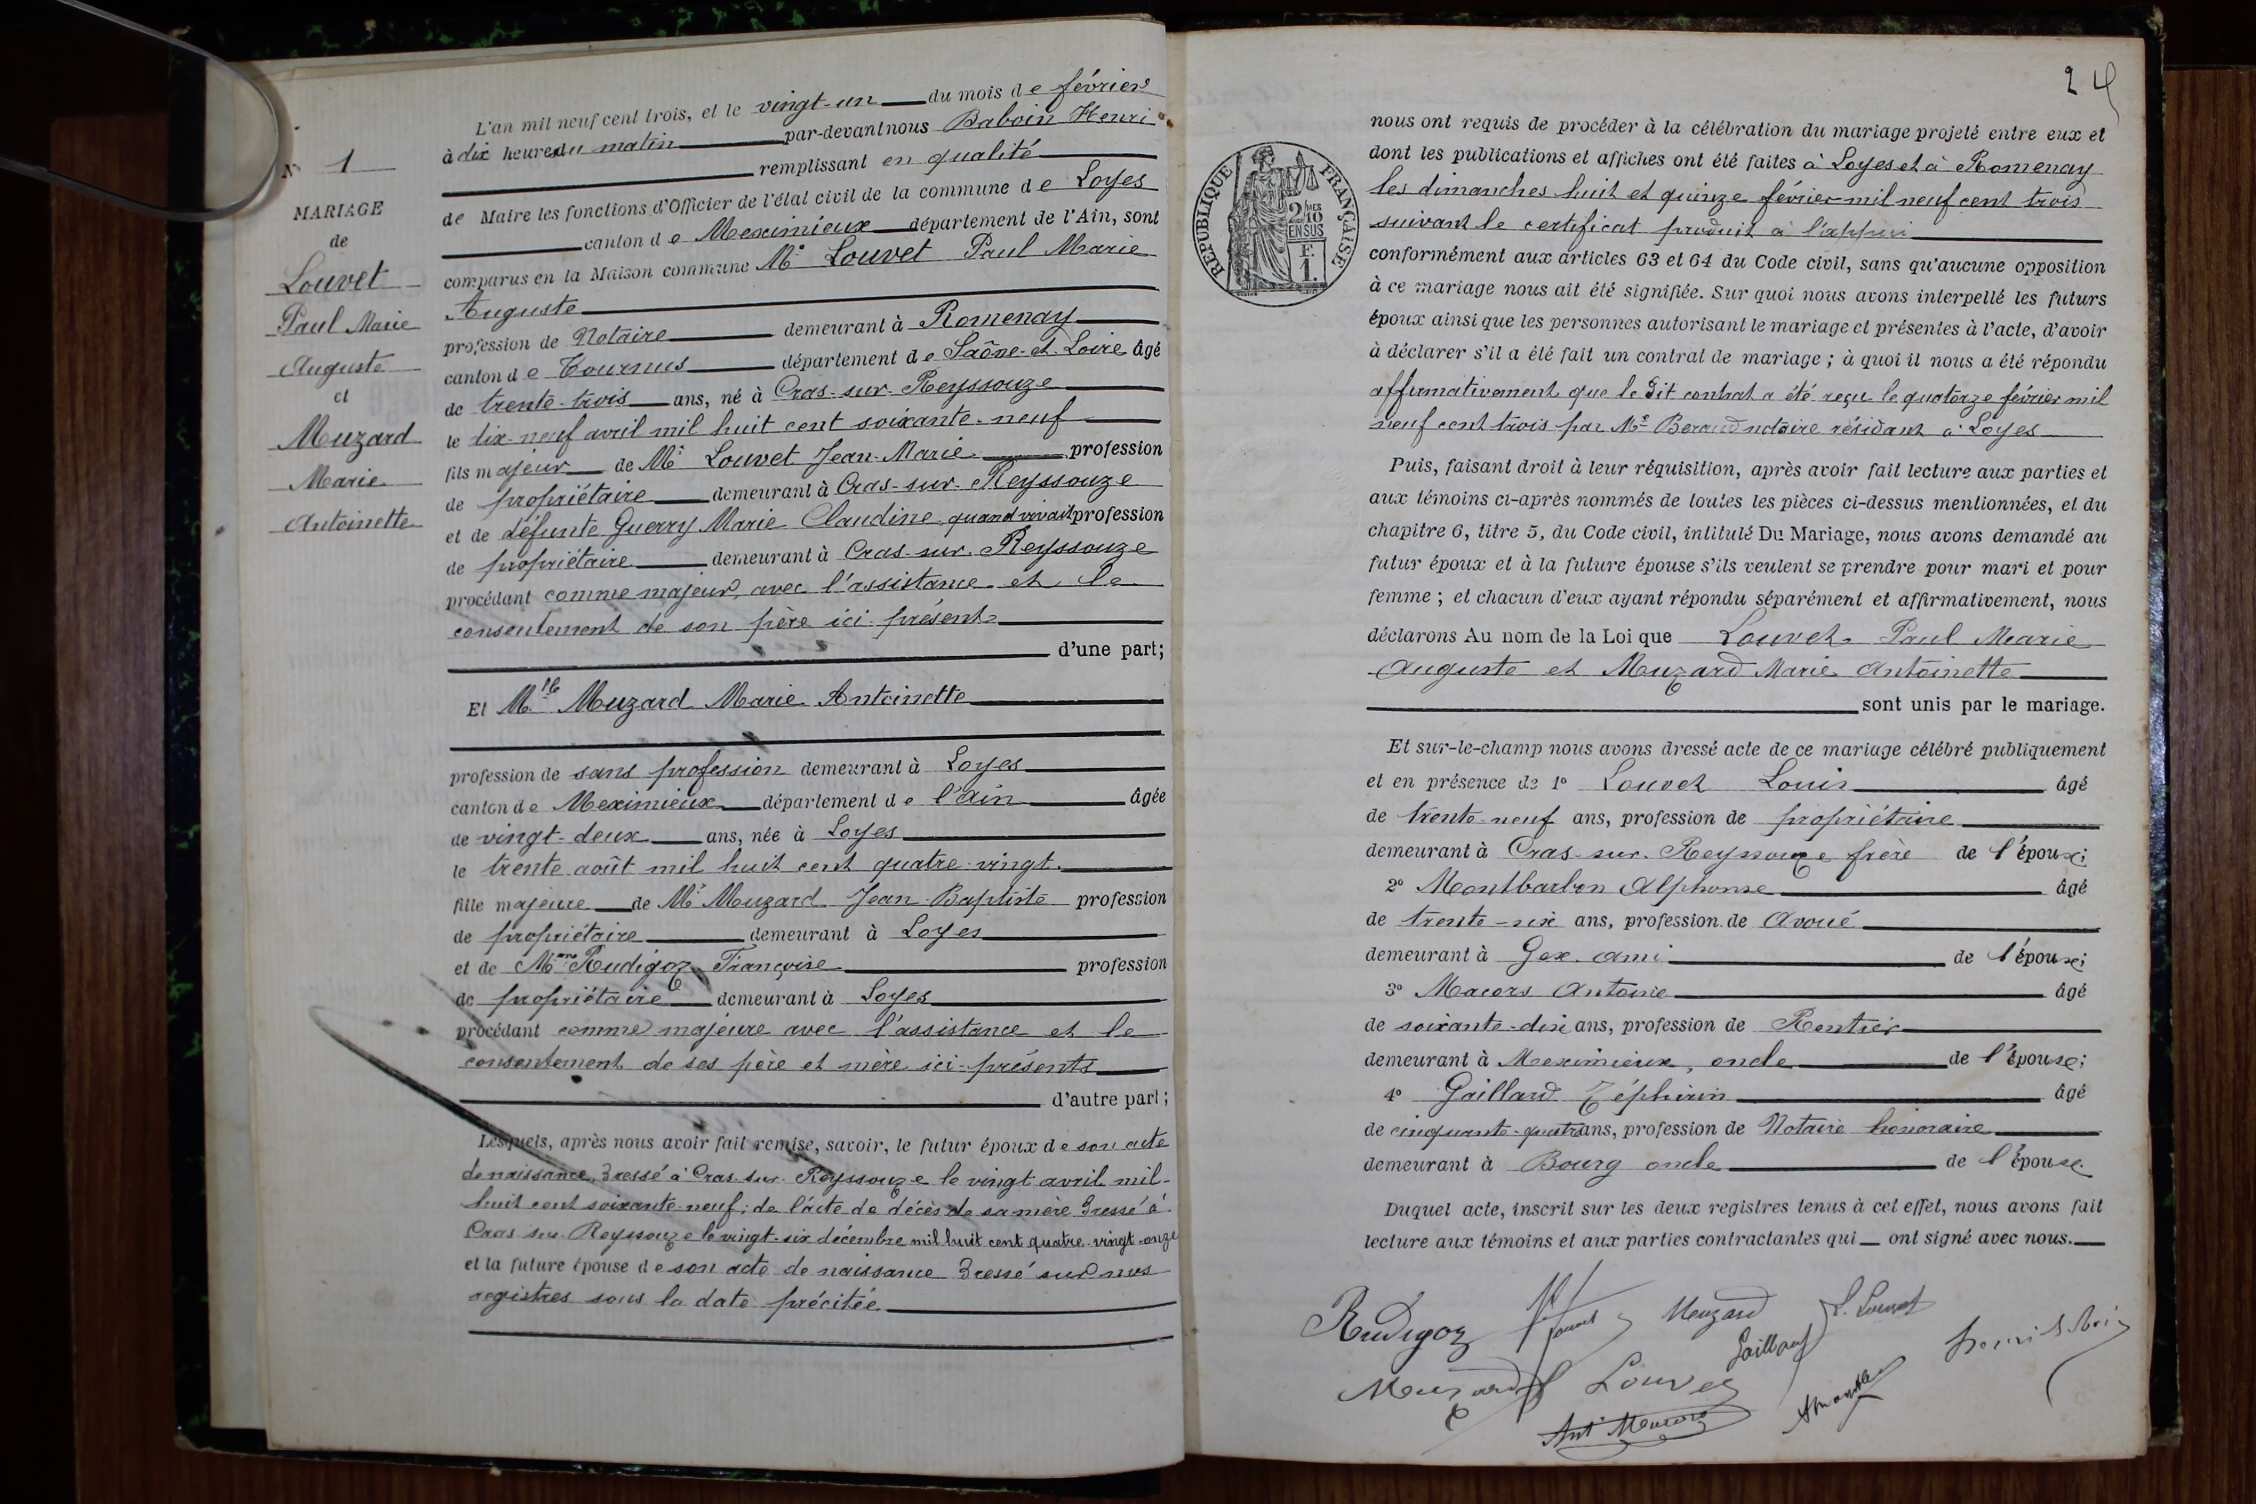 N° 1
MARIAGE
de
Louvet
Paul Marie
Auguste
et
Muzard
Marie
Antoinette
L'an mil neuf cent trois, et le vingt-un du mois de février
à dix heures du matin par-devant nous Baboin Henri
remplissant en qualité
de Maire les fonctions d'Officier de l'état civil de la commune de Loyes
canton de Meximieux département de l'Ain, sont
comparus en la Maison commune Mr Louvet Paul Marie
Auguste
profession de Notaire demeurant à Romenay
canton de Tournus département de Saône-et-Loire âgé
de trente-trois ans, né à Cras-sur-Reyssouze
le dix-neuf avril mil huit cent soixante-neuf
fils majeur de Mr Louvet Jean-Marie profession
de propriétaire demeurant à Cras-sur-Reyssouze
et de défunte Guerry Marie Claudine quand vivait profession
de propriétaire demeurant à Cras-sur-Reyssouze
procédant comme majeur, avec l'assistance et le
consentement de son père ici présent
d'une part;
Et Mlle Muzard Marie Antoinette
profession de sans profession demeurant à Loyes
canton de Meximieux département de l'Ain âgée
de vingt-deux ans, née à Loyes
le trente août mil huit cent quatre-vingt
fille majeure de Mr Muzard Jean-Baptiste profession
de propriétaire demeurant à Loyes
et de Mme Rudigoz Françoise profession
de propriétaire demeurant à Loyes
procédant comme majeure avec l'assistance et le
consentement de ses père et mère ici-présents
d'autre part;
Lesquels, après nous avoir fait remise, savoir, le futur époux de son acte
de naissance, dressé à Cras-sur-Reyssouze le vingt avril mil-
huit cent soixante-neuf; de l'acte de décès de sa mère dressé à
Cras sur Reyssouze le vingt-six décembre mil huit cent quatre-vingt-onze
et la future épouse de son acte de naissance dressé sur nos
registres sous la date précitée
24
RÉPUBLIQUE FRANÇAISE
2/10
EN SUS
F.
1.
nous ont requis de procéder à la célébration du mariage projeté entre eux et
dont les publications et affiches ont été faites à Loyes et à Romenay
les dimanches huit et quinze février mil neuf cent trois
suivant le certificat produit à l'appui
conformément aux articles 63 et 64 du Code civil, sans qu'aucune opposition
à ce mariage nous ait été signifiée. Sur quoi nous avons interpellé les futurs
époux ainsi que les personnes autorisant le mariage et présentes à l'acte, d'avoir
à déclarer s'il a été fait un contrat de mariage; à quoi il nous a été répondu
affirmativement que le dit contrat a été reçu le quatorze février mil
neuf cent trois par Me Beraud notaire résidant à Loyes
Puis, faisant droit à leur réquisition, après avoir fait lecture aux parties et
aux témoins ci-après nommés de toutes les pièces ci-dessus mentionnées, et du
chapitre 6, titre 5, du Code civil, intitulé Du Mariage, nous avons demandé au
futur époux et à la future épouse s'ils veulent se prendre pour mari et pour
femme; et chacun d'eux ayant répondu séparément et affirmativement, nous
déclarons Au nom de la Loi que Louvet Paul Marie
Auguste et Muzard Marie Antoinette
sont unis par le mariage.
Et sur-le-champ nous avons dressé acte de ce mariage célébré publiquement
et en présence de 1° Louvet Louis âgé
de trente-neuf ans, profession de propriétaire
demeurant à Cras-sur-Reyssouze frère de l'époux;
2° Montbarbon Alphonse âgé
de trente-six ans, profession de Avoué
demeurant à Gex. ami de l'époux;
3° Macors Antoine âgé
de soixante-dix ans, profession de Rentier
demeurant à Meximieux, oncle de l'épouse;
4° Gaillard Zéphirin âgé
de cinquante-quatre ans, profession de Notaire honoraire
demeurant à Bourg oncle de l'épouse.
Duquel acte, inscrit sur les deux registres tenus à cet effet, nous avons fait
lecture aux témoins et aux parties contractantes qui ont signé avec nous.
Rudigoz Muzard L. Louvet
Gaillard
Muzard Louvet
Ant. Macors